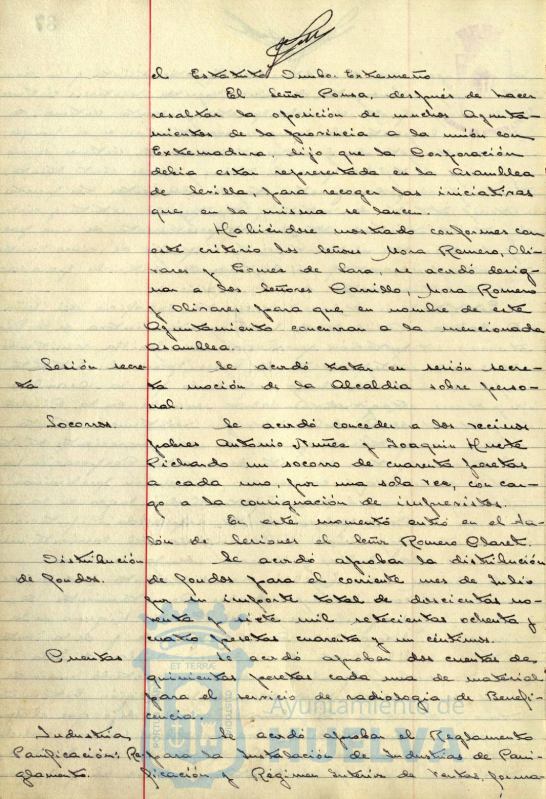 el Estatuto Onubo-Extremeño
El Señor Ponsa, después de hacer
resaltar la oposición de muchos Ayunta-
mientos de la provincia a la unión con
Extremadura, dijo que la Corporación
debia estar representada en la Asamblea
de Sevilla, para recoger las iniciativas
que en la misma se lancen.
Habiéndose mostrado conformes con
este criterio los Señores Mora Romero, Oli-
vares y Gomez de Lara, se acordó desig-
nar a los Señores Carrillo, Mora Romero
y Olivares para que en nombre de este
Ayuntamiento concurran a la mencionada
Asamblea.
Sesión secre-
ta
Se acordó tratar en sesión secre-
ta moción de la Alcaldia sobre perso-
nal.
Socorros.
Se acordó conceder a los vecinos
pobres Antonio Nuñez y Joaquin Huete
Pichardo un socorro de cuarenta pesetas
a cada uno, por una sola vez, con car-
go a la consignación de imprevistos.
En este momento entró en el Sa-
lón de Sesiones el Señor Romero Claret.
Distribución
de fondos.
Se acordó aprobar la distribución
de fondos para el corriente mes de Julio
por un importe total de doscientas no-
venta y siete mil setecientas ochenta y
cuatro pesetas cuarenta y un céntimos.
Cuentas
Se acordó aprobar dos cuentas de
quinientas pesetas cada una de material
para el servicio de radiologia de Benefi-
cencia.
Industrias
Panificación: Re-
glamento.
Se acordó aprobar el Reglamento
para la Instalación de Industrias de Pani-
ficación y Régimen Interior de Ventas, forma-
ET TERRÆ
Ayuntamiento de
HUELVA